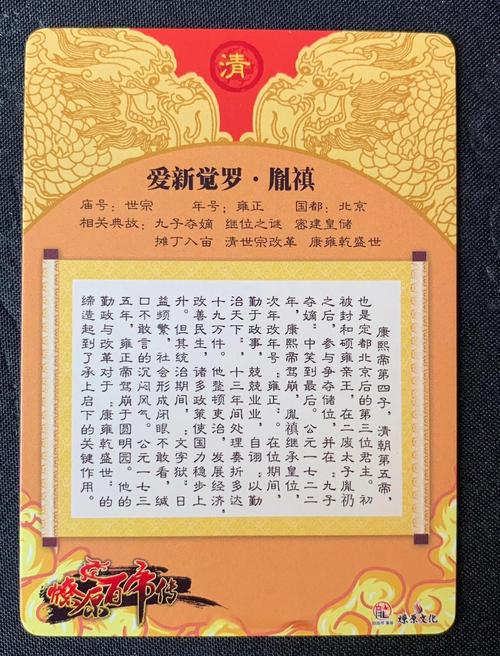 清
爱新觉罗·胤禛
庙号：世宗　年号：雍正　国都：北京
相关典故：九子夺嫡　继位之谜　密建皇储
摊丁入亩　清世宗改革　康雍乾盛世
康熙帝第四子，清朝第五帝，
也是定都北京后的第三位君主。初
被封和硕雍亲王，在二废太子胤礽
之后，参与争夺储位，并在“九子
夺嫡”中笑到最后。公元一七二二
年，康熙帝驾崩，胤禛继承皇位，
次年改年号：“雍正”。在位期间，
勤于政事，兢兢业业，自诩：“以勤
治天下”，十三年间处理奏折多达
十九万件。他整顿吏治，发展经济，
改善民生，诸多政策使国力稳步上
升。但其统治期间，“文字狱”日
益频繁，社会形成闭眼不敢看，缄
口不敢言的沉闷风气。公元一七三
五年，雍正帝驾崩于圆明园。他的
勤政与改革对于“康雍乾盛世”的
缔造起到了承上启下的关键作用。
燎原百帝传
燎原文化